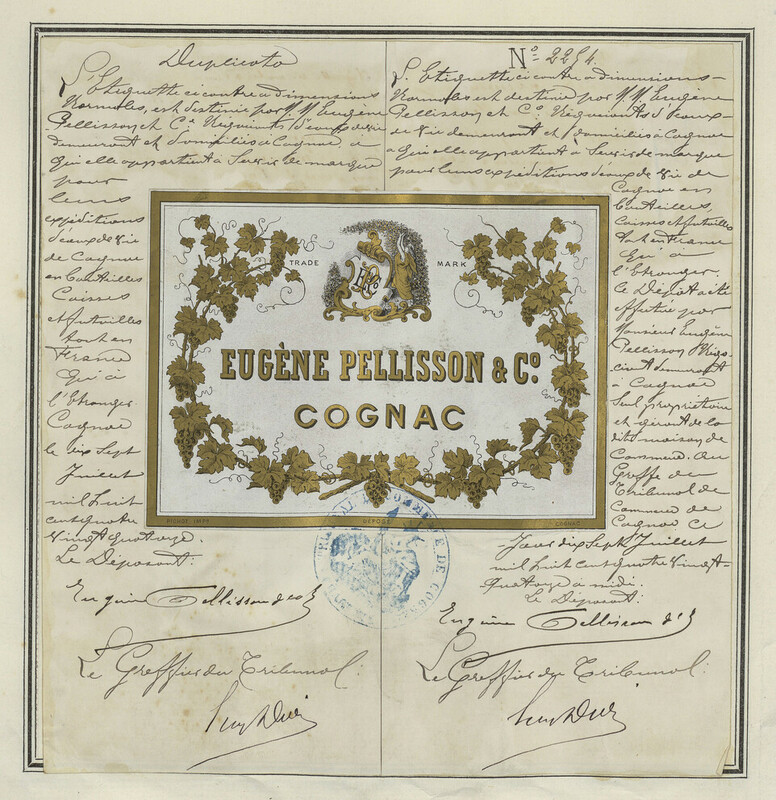 Duplicata
L'Etiquette ci contre à dimensions
Normales, est destinée par M.M. Eugène
Pellisson et Cie Négociants d'eaux de vie
demeurant et domiciliés à Cognac, à
qui elle appartient à Servir de marque
pour
leurs
expéditions
d'eaux de vie
de Cognac
en bouteilles
Caisses
et futailles
tant en
France
qu'à
l'Etranger.
Cognac
le dix sept
Juillet
mil huit
cent quatre
vingt quatorze.
Le Déposant:
Eugène Pellisson & Co
Le Greffier du Tribunal:
No 2254.
L'Etiquette ci contre à dimensions
Normales est destinée par M.M. Eugène
Pellisson et Cie Négociants d'eaux-
de-vie demeurant et domiciliés à Cognac
à qui elle appartient à Servir de marque
pour leurs expéditions d'eaux de vie de
Cognac en
bouteilles,
Caisses et futailles
tant en France
qu'à
l'Etranger.
Ce Dépôt a été
effectué par
Monsieur Eugène
Pellisson Négo-
ciant demeurant
à Cognac
Seul propriétaire
et gérant de la
dite maison de
Commerce. Au
Greffe du
Tribunal de
Commerce de
Cognac ce
Jour dix sept Juillet
mil huit cent quatre vingt-
quatorze à midi.
Le Déposant:
Eugène Pellisson & Co
Le Greffier du Tribunal:
TRADE MARK
EUGÈNE PELLISSON & Co.
COGNAC
DÉPOSÉ
COGNAC